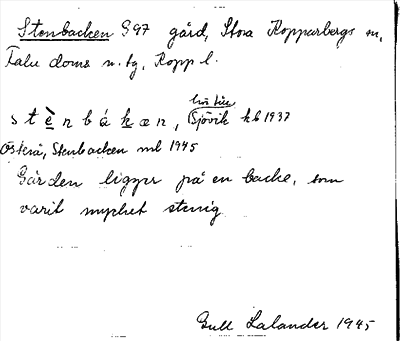 Stenbacken S97 gård, Stora Kopparbergs sn,
Falu doms n. tg, Kopp l.
stènbákæn, Sjövik kb 1937
Österå, Stenbacken ml 1945
Gården ligger på en backe, som
varit mycket stenig
Gull Lalander 1945